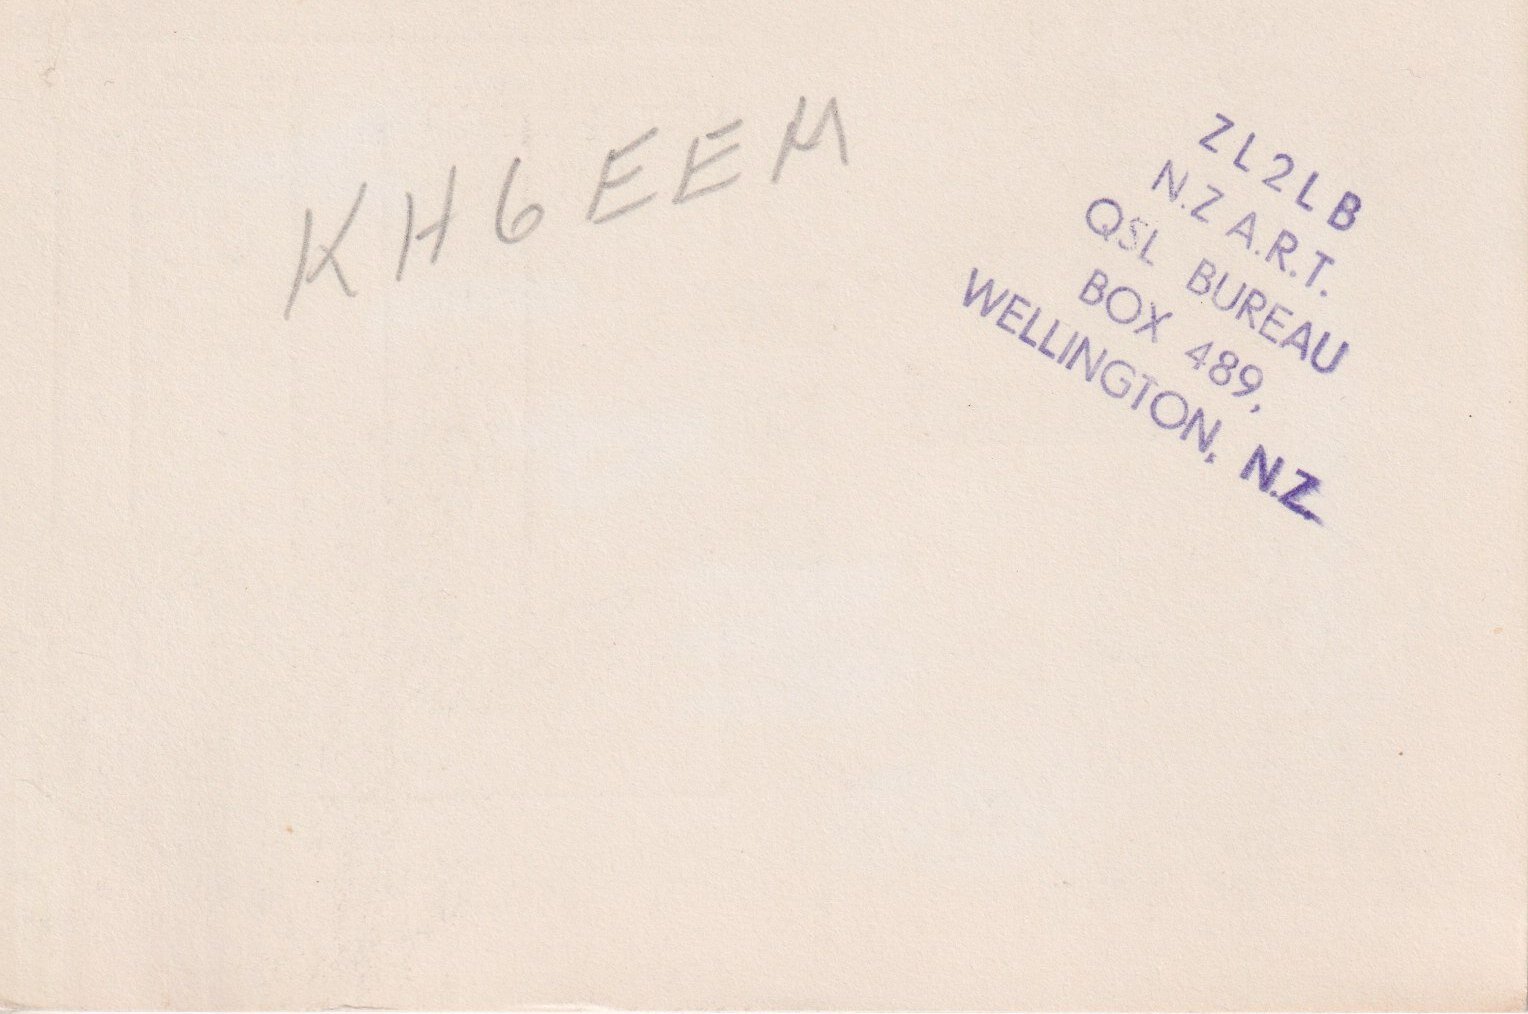 KH6EEM
ZL2LB
N.Z A.R.T.
QSL BUREAU
BOX 489,
WELLINGTON, N.Z.